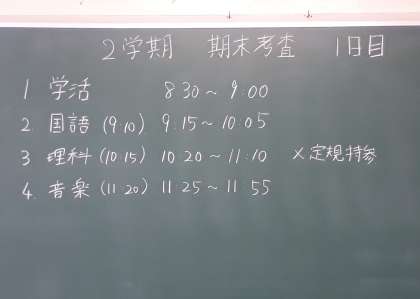 2学期 期末考査 1日目
1 学活 8:30～9:00
2. 国語 (9:10) 9:15～10:05
3 理科 (10:15) 10:20～11:10 ×定規持参
4. 音楽 (11:20) 11:25～11:55